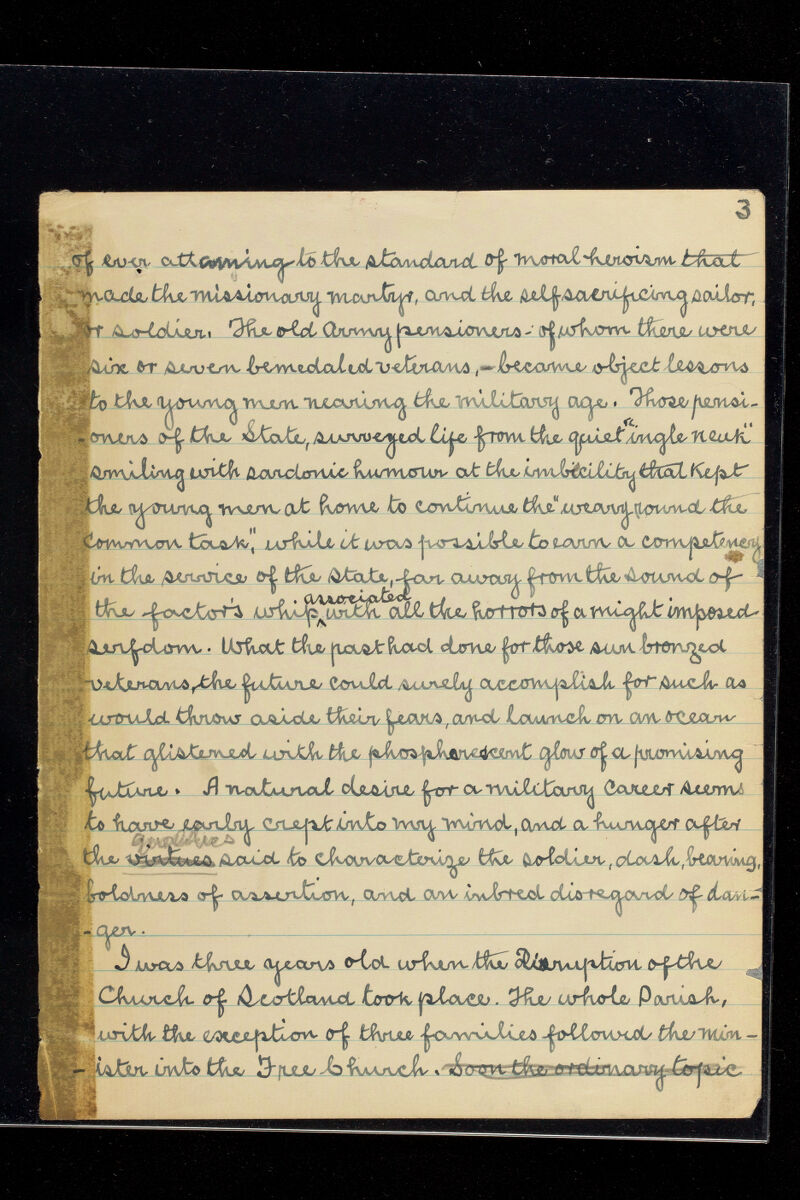 3
of ever attaining to the standard of moral heroism that
made the missionary martyr, and the selfsacrificing sailor,
or soldier. The old Army pensioners - of whom there were
six or seven bemedaled veterans, - became object lessons
to the young men nearing the military age. Those pensi-
-oners of the State, surveyed life from the quiet "ingle neuk"
smiling with sardonic humour at the imbicility that kept
the young men at home to continue the "weary round the
common task," while it was possible to earn a competency
in the service of the State, far away from the sound of
associated
the factor's whip, with all the horrors of a might imposed
serfdom. What the past had done for those sun bronzed
veterans, the future could surely accomplish for such as
would throw aside their fears, and launch on an ocean
that glistened with the phospherescent glow of a promising
future. A natural desire for a military career seems
to have early crept into my mind, and a hunger after
qualities
the virtues said to characterize the soldier, dash, bearing,
boldness of assertion, and an inbred disregard of dan-
-ger.
I was three years old when the Disruption of the
Church of Scotland took place. The whole Parish,
with the exception of three families followed the min-
-ister into the Free Church. Soon the ordinary topic